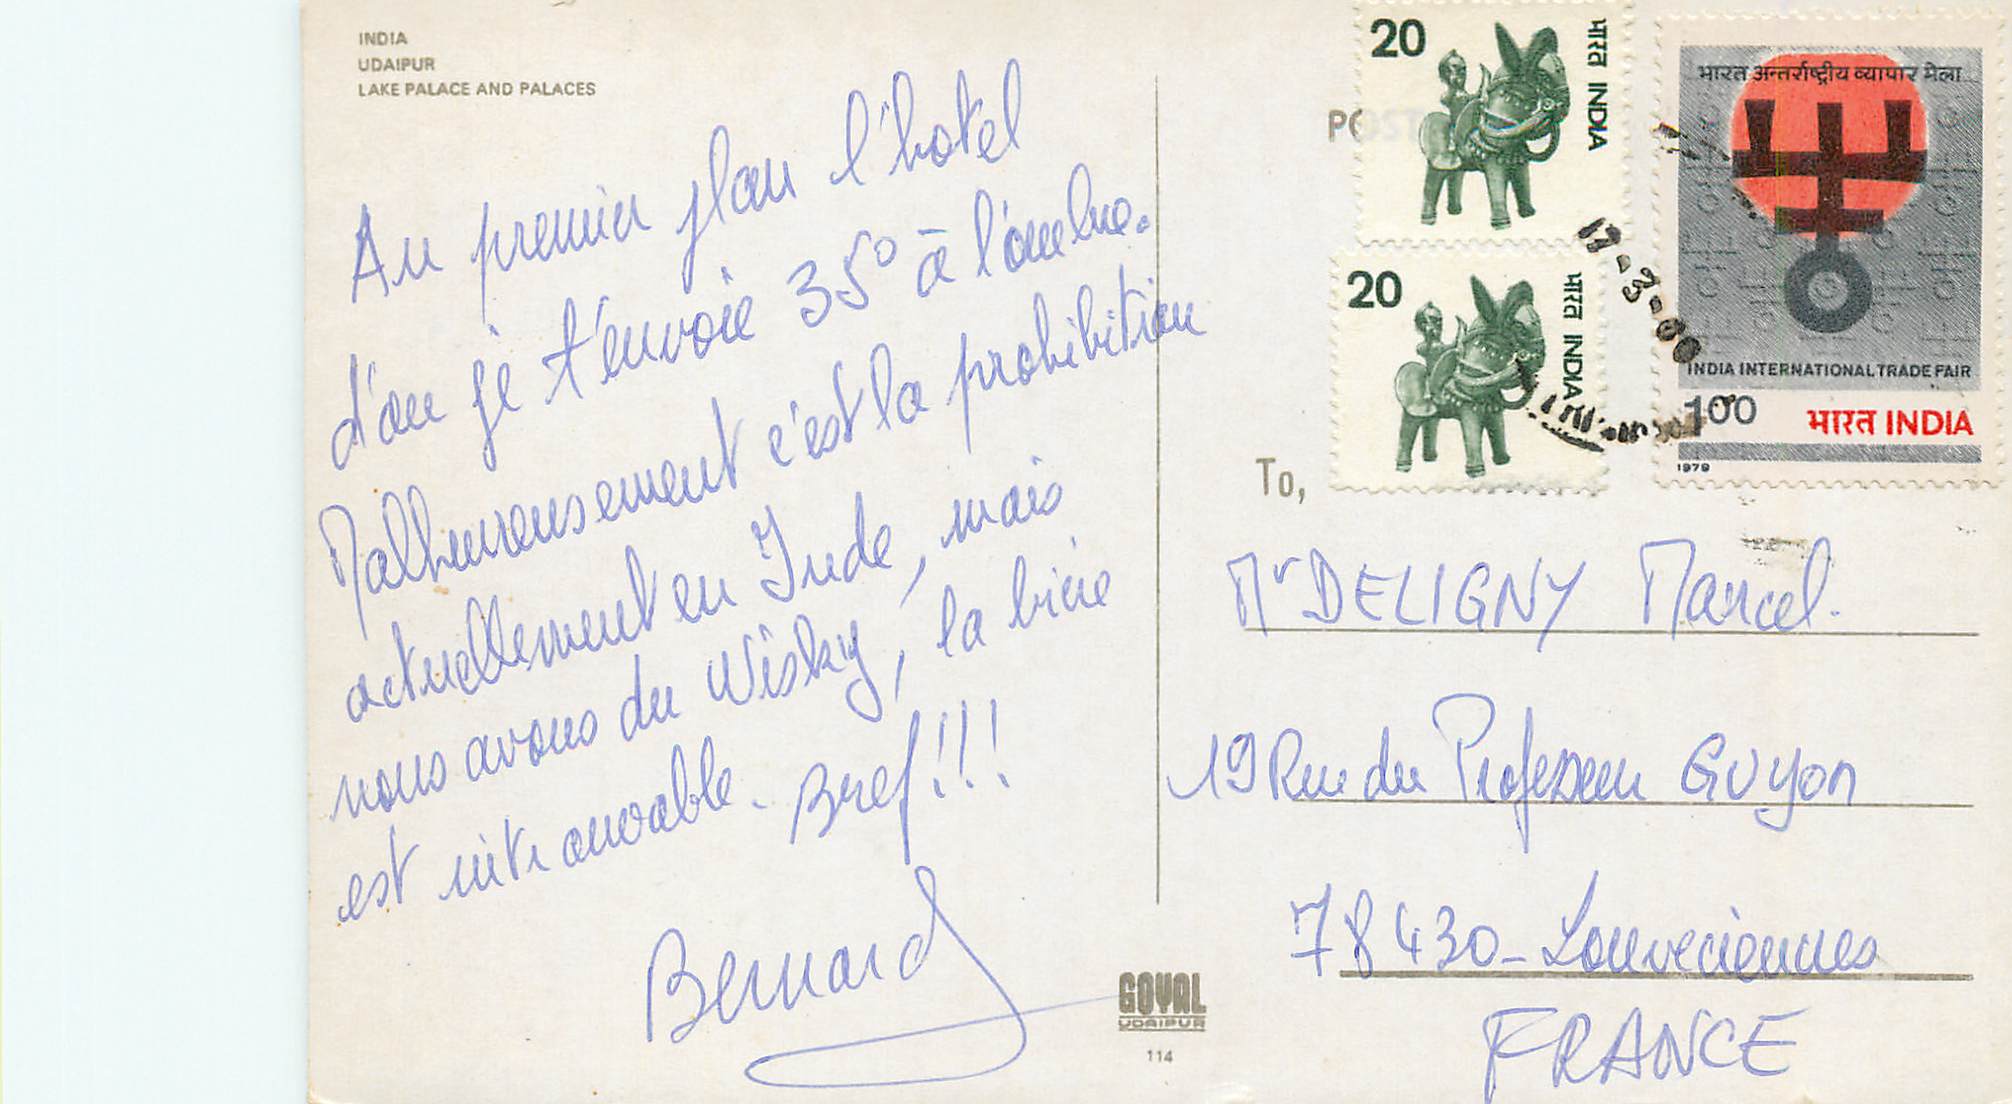 INDIA
UDAIPUR
LAKE PALACE AND PALACES
Au premier plan l'hotel
d'ou je t'envoie 35° à l'ombre.
Malheureusement c'est la prohibition
actuellement en Inde, mais
nous avons du Wisky, la bière
est introuvable. Bref!!!
Bernard
GOYAL
UDAIPUR
114
POST
20
भारत INDIA
20
भारत INDIA
भारत अन्तर्राष्ट्रीय व्यापार मेला
INDIA INTERNATIONAL TRADE FAIR
100
भारत INDIA
1979
17-3-80
To,
Mr DELIGNY Marcel.
19 Rue du Professeur GUYON
78430 - Louveciennes
FRANCE